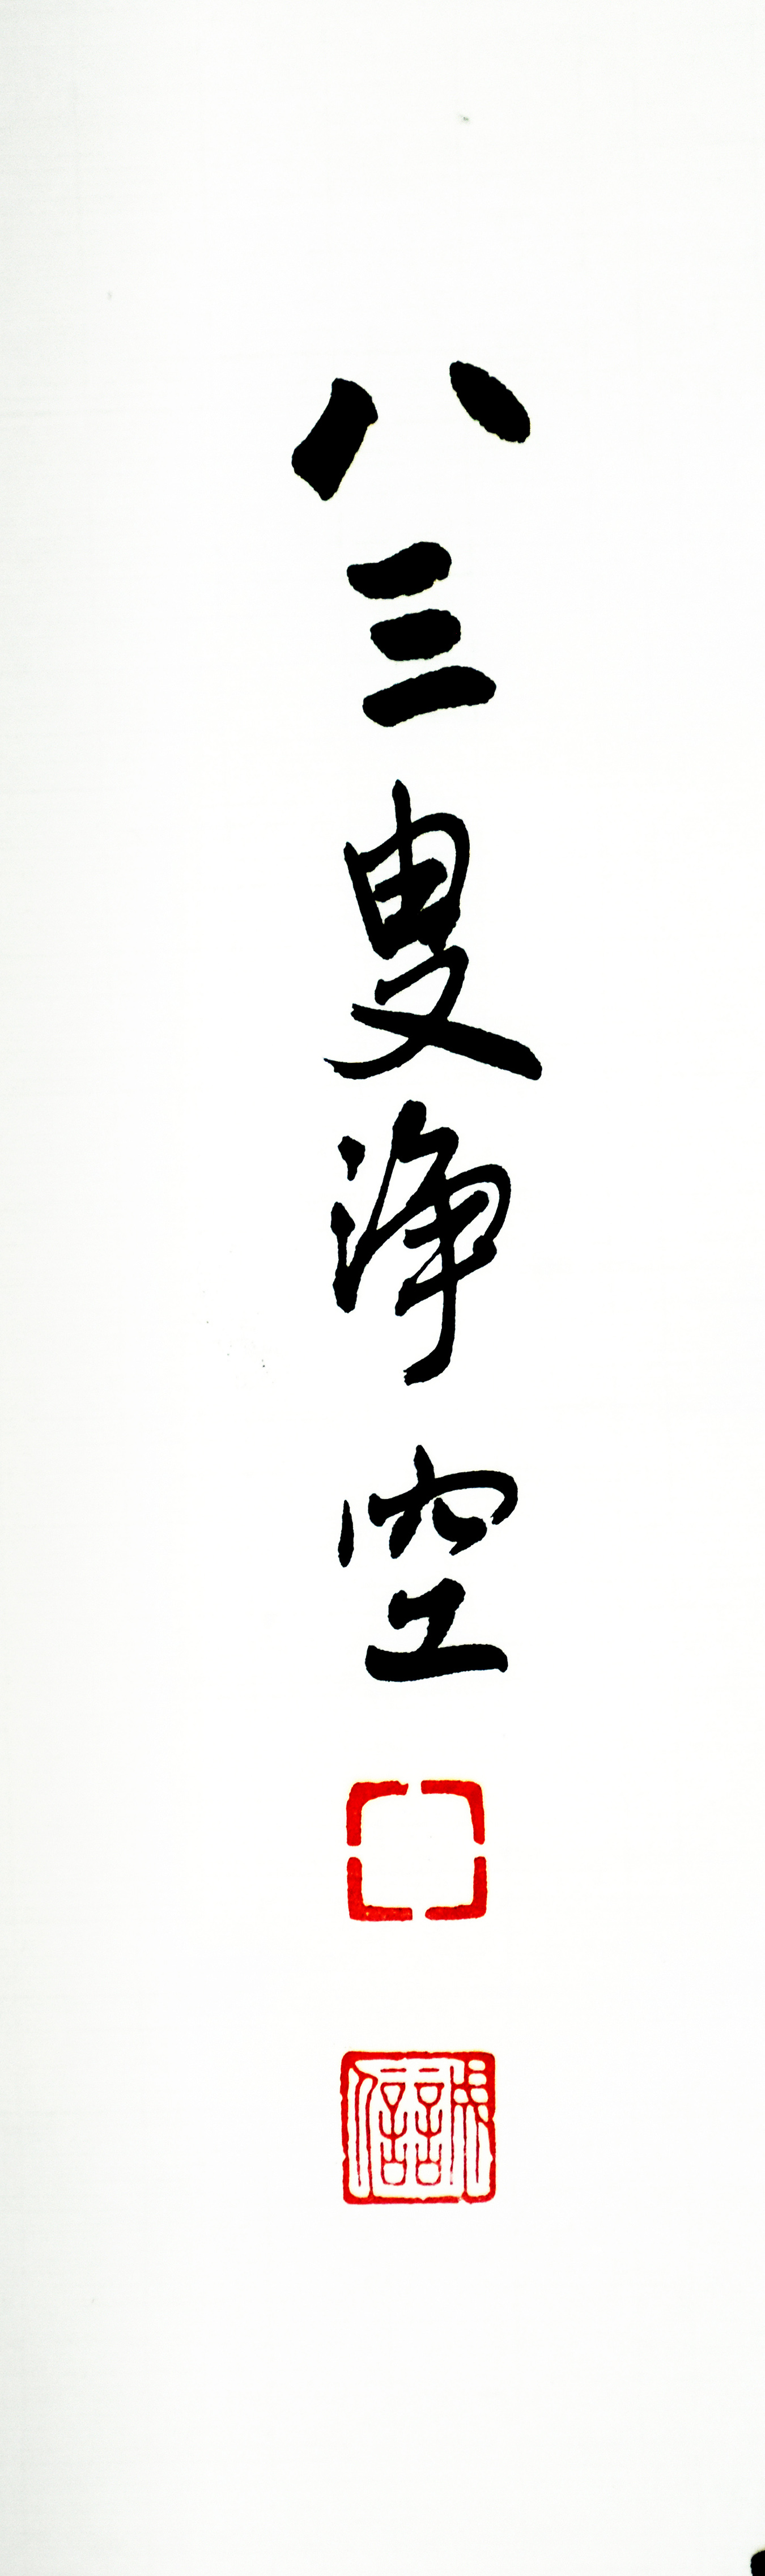 八三叟淨空